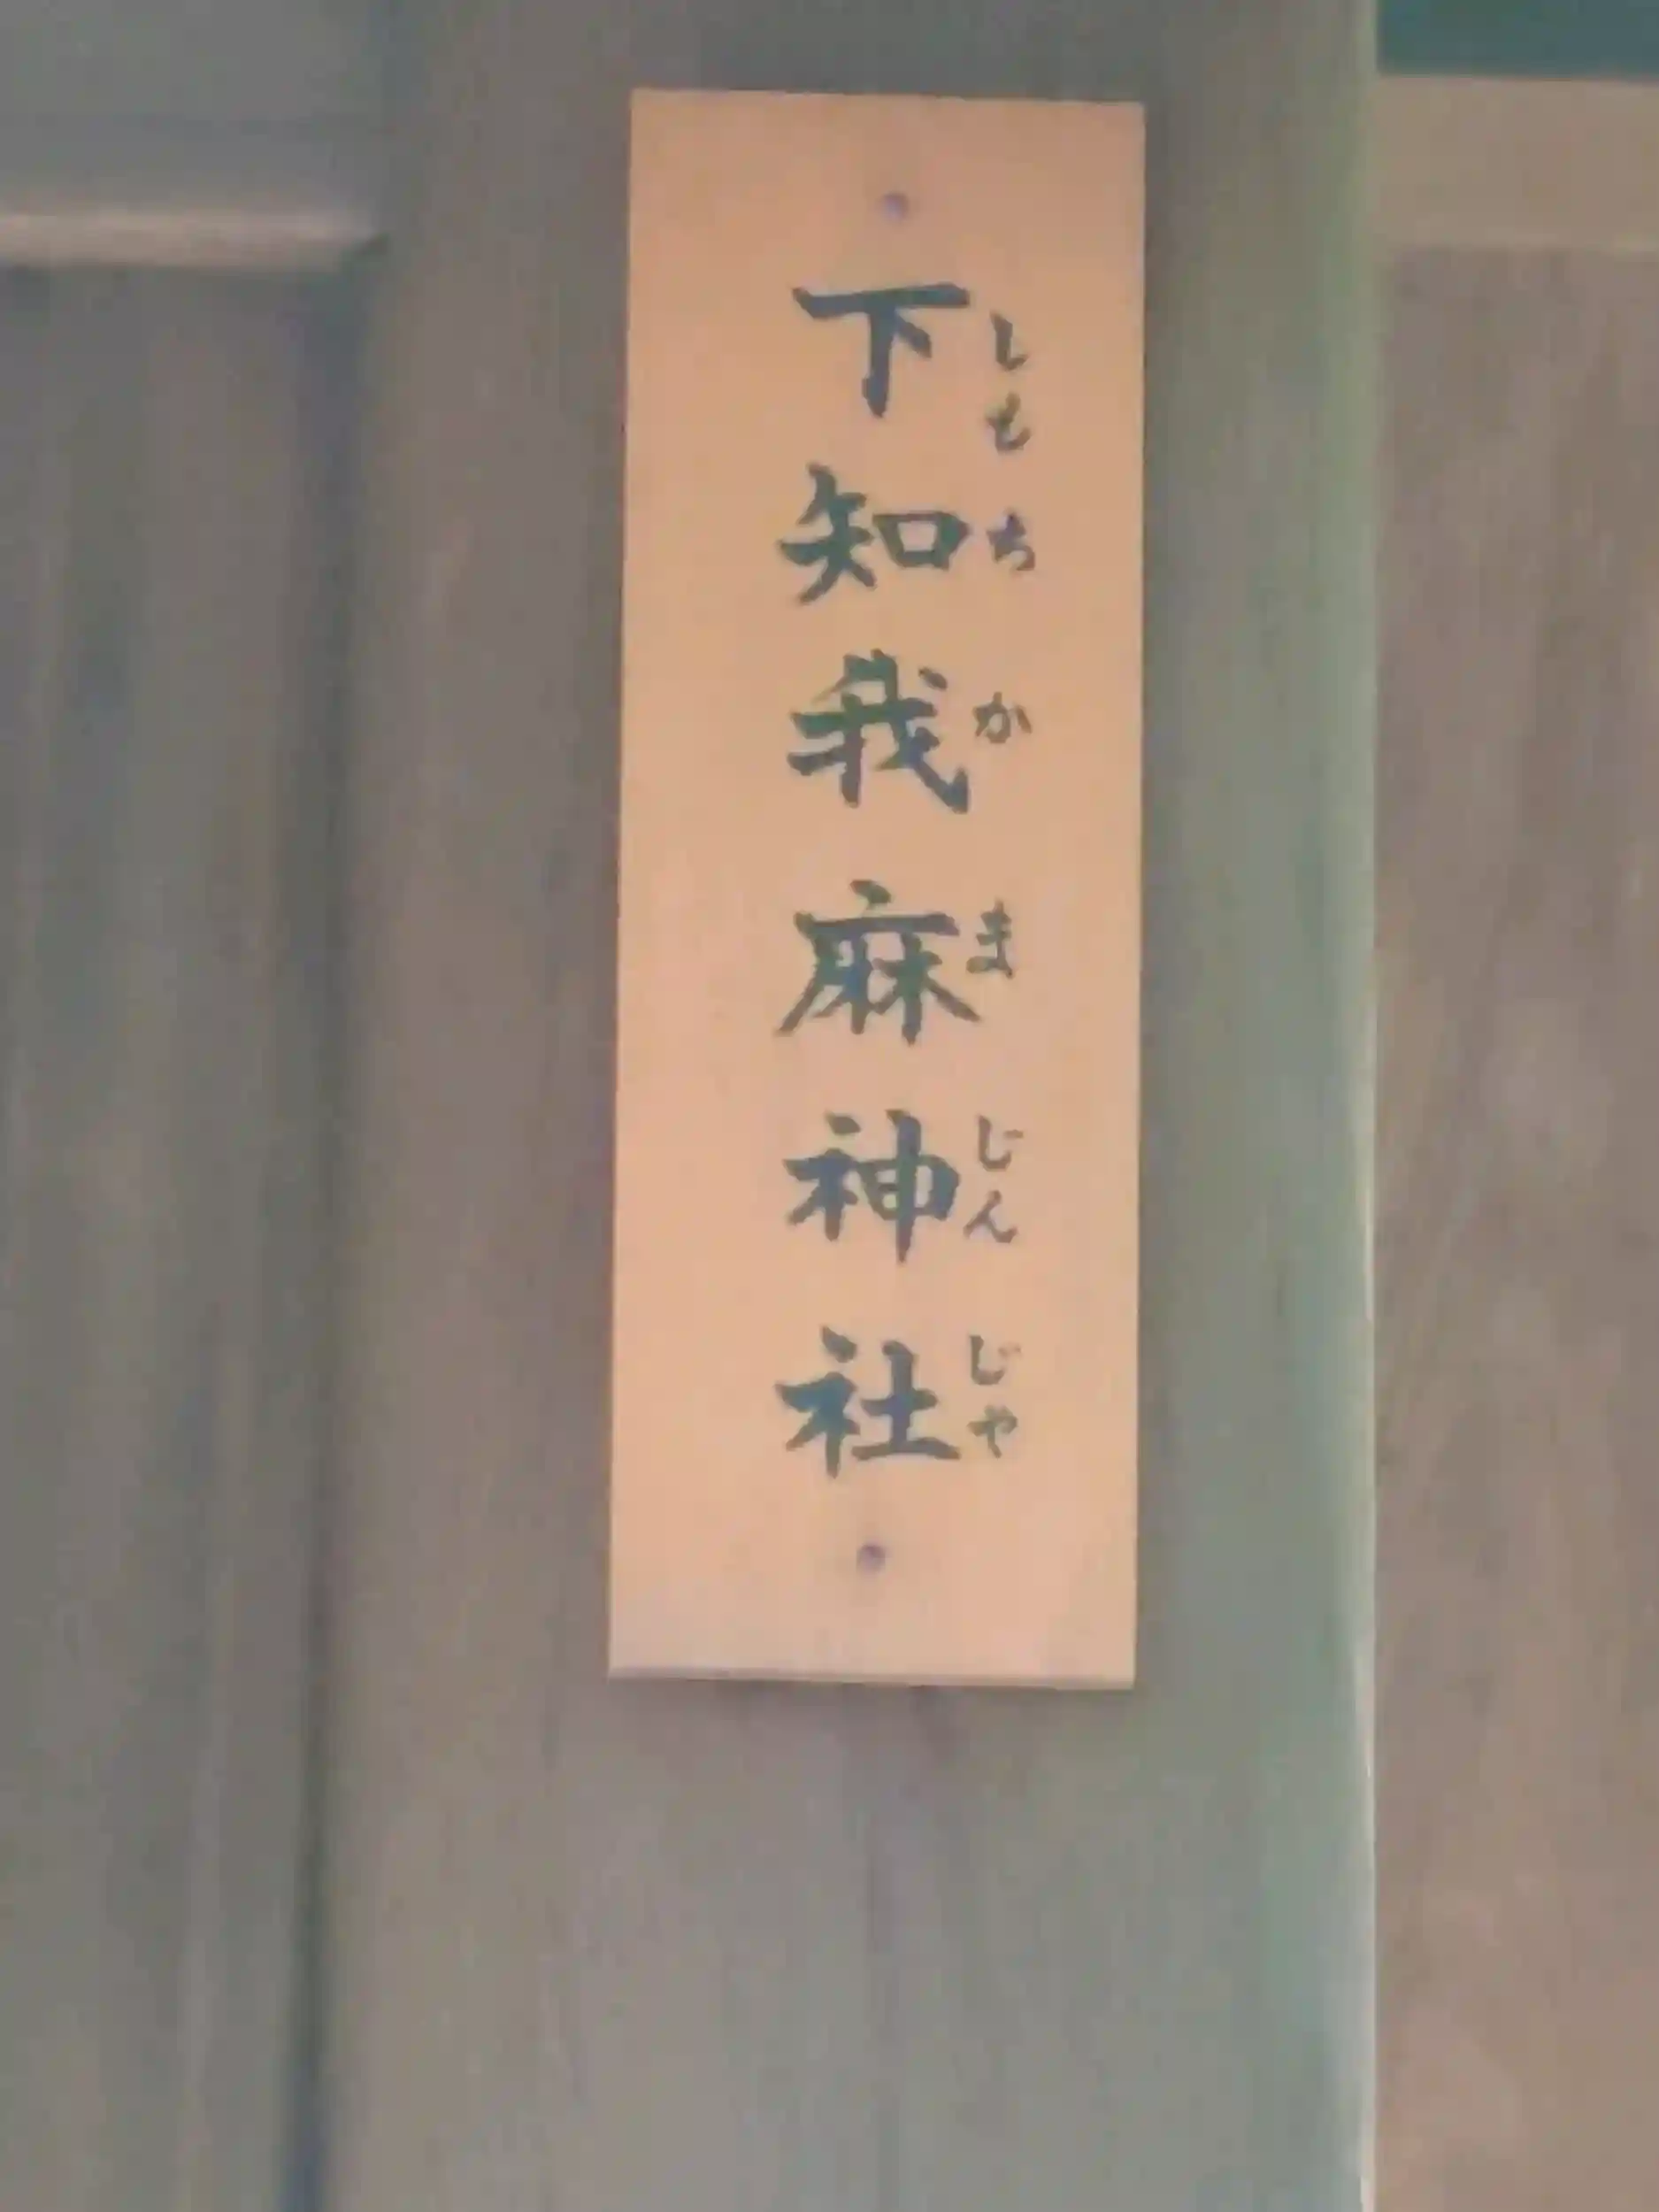 下知我麻神社
しもちかまじんじや